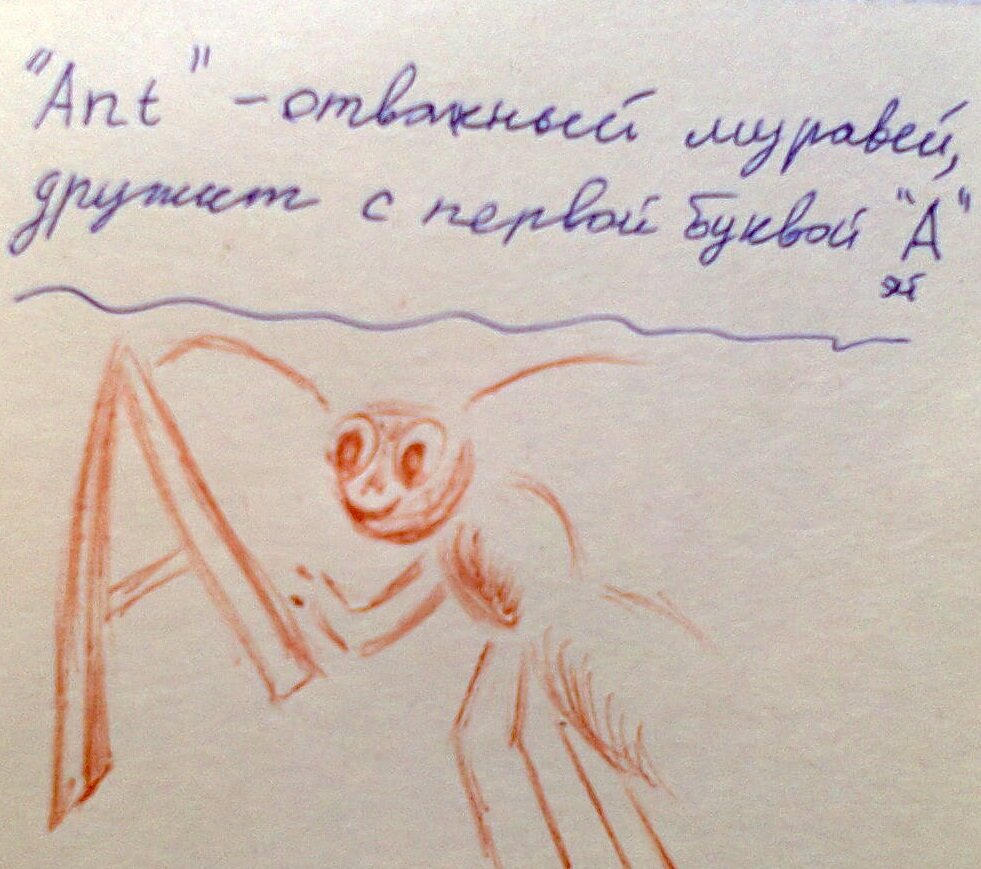 "Ant" - отважный муравей,
дружит с первой буквой "А"
эй